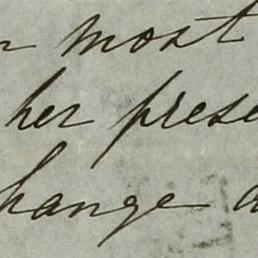 most
her prese
hange